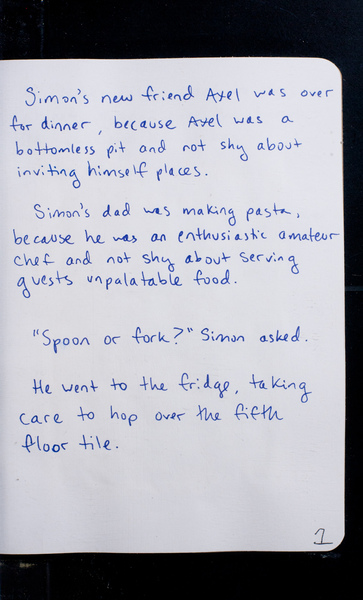 Simon's new friend Axel was over
for dinner, because Axel was a
bottomless pit and not shy about
inviting himself places.
Simon's dad was making pasta,
because he was an enthusiastic amateur
chef and not shy about serving
guests unpalatable food.
"Spoon or fork?" Simon asked.
He went to the fridge, taking
care to hop over the fifth
floor tile.
1